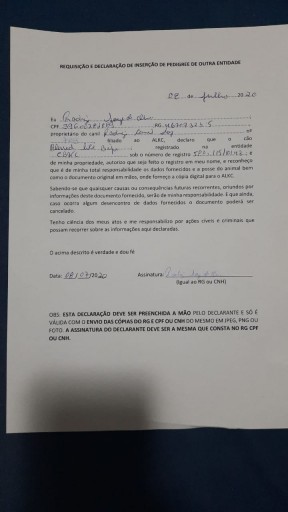 REQUISIÇÃO E DECLARAÇÃO DE INSERÇÃO DE PEDIGREE DE OUTRA ENTIDADE
28 de julho de 2020
Eu
CPF RG
proprietário do canil nº
filiado ao ALKC, declaro que o cão
registrado na entidade
CBKC sob o número de registro e
de minha propriedade, autorizo que seja feito o registro em meu nome, e reconheço
que é de minha total responsabilidade os dados fornecidos e a posse do animal bem
como o documento original em mãos, onde forneço a cópia digital para o ALKC.
Sabendo-se que quaisquer causas ou consequências futuras recorrentes, oriundos por
informações deste documento fornecido, serão de minha responsabilidade. E que ainda,
caso ocorra algum desencontro de dados fornecidos o documento poderá ser
cancelado.
Tenho ciência dos meus atos e me responsabilizo por ações civeis e criminais que
possam recorrer sobre as informações aqui declaradas.
O acima descrito é verdade e dou fé
Data: /2020 Assinatura:
(Igual ao RG ou CNH)
OBS: ESTA DECLARAÇÃO DEVE SER PREENCHIDA A MÃO PELO DECLARANTE E SÓ É
VÁLIDA COM O ENVIO DAS CÓPIAS DO RG E CPF OU CNH DO MESMO EM JPEG, PNG OU
FOTO. A ASSINATURA DO DECLARANTE DEVE SER A MESMA QUE CONSTA NO RG CPF
OU CNH.